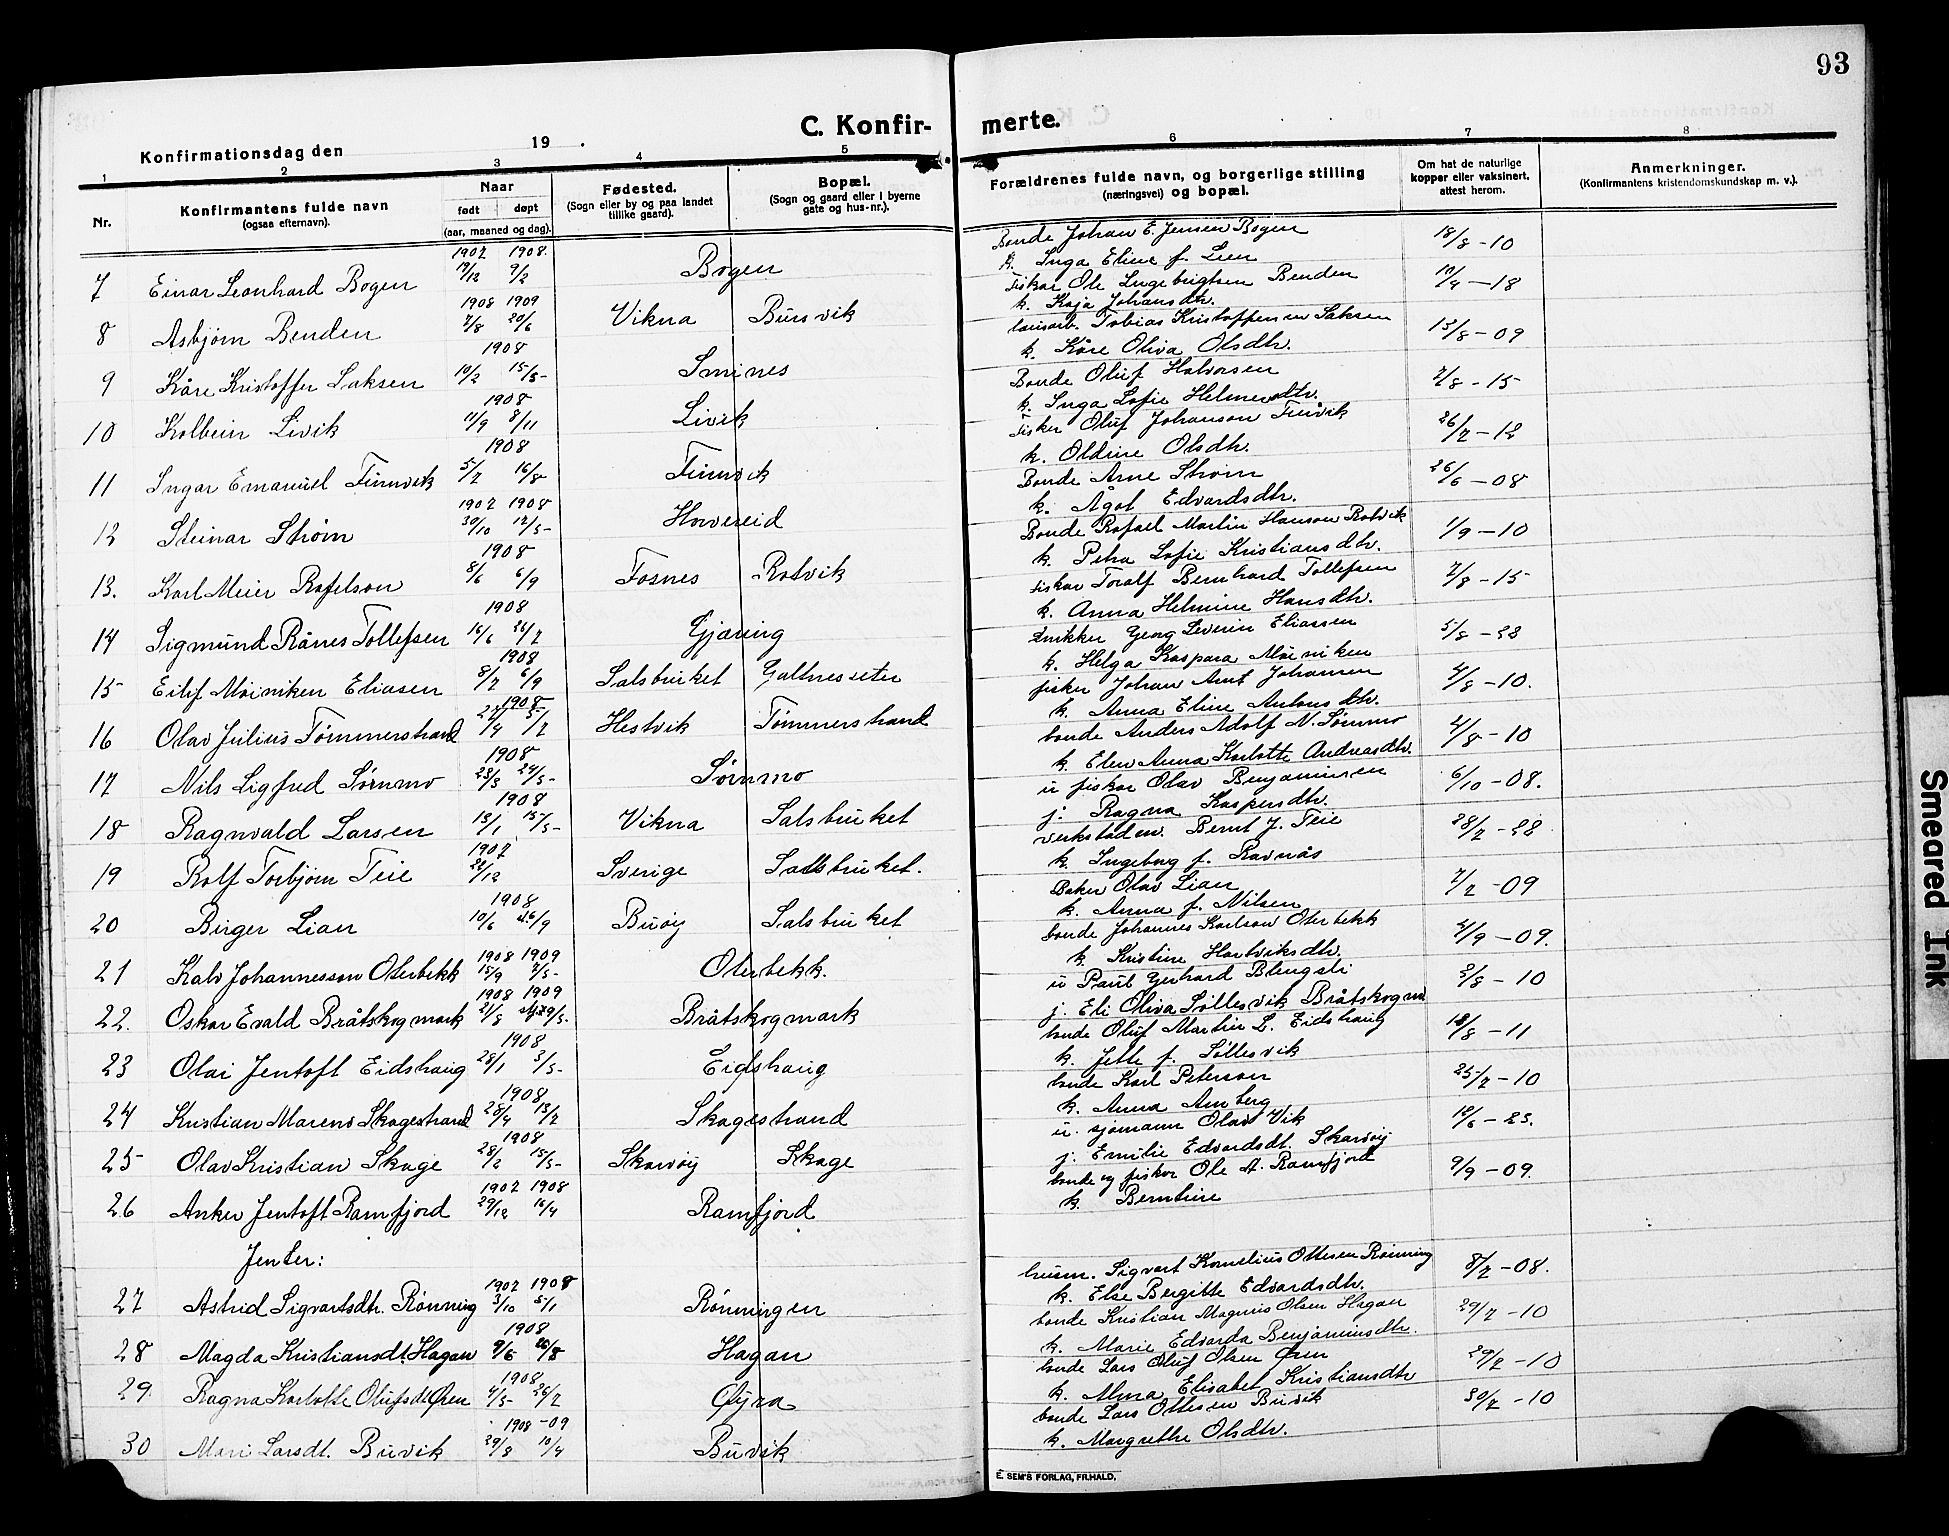 93
C. Konfir- merte.
Konfirmationsdag den 19 .
1 2 3 4 5 6 7 8
Nr.
Konfirmantens fulde navn
(ogsaa efternavn).
Naar
født døpt
(aar, maaned og dag).
Fødested.
(Sogn eller by og paa landet
tillike gaard).
Bopæl.
(Sogn og gaard eller i byerne
gate og hus-nr.).
Forældrenes fulde navn, og borgerlige stilling
(næringsvei) og bopæl.
Om hat de naturlige
kopper eller vaksinert,
attest herom.
Anmerkninger.
(Konfirmantens kristendomskundskap m. v.).
1907 1908.
7 Einar Leonhard Bogen 19/12 9/2 Bogen
Bonde Johan E. Jensen Bogen 18/8-10
k. Inga Eline f. Lien
1908 1909
8 Asbjørn Benden 7/8 20/6 Vikna Bursvik
Fisker Ole Ingebrigtsen Benden 19/4-18
k. Kaja Johansdtr.
1908
9 Kåre Kristoffer Saksen 10/2 15/5- Smines
Tobias Kristoffersen Saksen 13/8-09
k. Kåre Oliva Olsdtr.
1908
10 Kolbein Livik 11/9 8/11 Livik
Bonde Oluf Halvorsen 7/8-15
k. Inga Sofie Helmersdtr.
1908
11 Ingar Emanuel Finnvik 5/7 16/8 Finnvik
Fisker Oluf Johanson Finvik 26/7-12
k. Oldine Olsdtr.
1907 1908
12 Steinar Strøm 30/10 12/5- Hovereid
Bonde Arne Strøm 26/6-08
k. Ågot Edvardsdtr.
1908
13. Karl Meier Rafelson 8/6 6/9 Fosnes Rotvik
Bonde Rafael Martin Hanson Rotvik 1/9-10
k. Petra Sofie Kristiansdtr.
1908
14 Sigmund Rånes Tollefsen 16/6 26/7 Gjæring
Fisker Toralf Bernhard Tollefsen 7/8-15
k. Anna Helmine Hansdtr.
1908
15 Eilif Møiniken Eliasen 8/7 6/9 Salsbruket Galtnesseter
Snikker Georg Severin Eliassen 5/8-22
k. Helga Kaspara Møiniken
1908
16 Olav Julius Tømmerstrand 27/4 5/7 Hestvik Tømmerstrand
fisker Johan Arnt Johansen 4/8-10.
k. Anna Eline Antonsdtr.
1908
17 Nils Sigfred Sørnmo 23/3 24/5- Sørnmo
bonde Anders Adolf N. Sørnmo 4/8-10
k. Elen Anna Karlotte Andreasdtr.
1908
18 Ragnvald Larsen 13/1 15/5- Vikna Salsbruket
u fisker Olav Benjaminsen 6/10-08.
j. Ragna Kaspersdtr.
1907
19 Rolf Torbjørn Teie 21/12 Sverige Salsbruket.
verkstadm. Bernt J. Teie 28/7-22
k. Ingeborg f. Ravnås
1908
20 Birger Lian 10/6 6/9 Buøy Salsbruket
Baker Olav Lian 7/2-09
k. Anna f. Nilsen
1908 1909
21 Kalv Johannesson Oterbekk 15/9 7/5- Oterbekk.
bonde Johannes Karlson Oterbekk 4/9-09.
k. Kristine Hartviksdtr.
1908 1909
22. Oskar Evald Bråtskogmark 21/8 29/5. Bråtskogmark
u Paul Gerhard Blengsli 2/8-10
j. Eli Oliva Søllesvik Bråtskogm
1908
23 Olai Jentoft Eidshaug 28/1 3/5- Eidshaug
bonde Oluf Martin L. Eidshaug 18/8-11
k. Jette f. Søllesvik
1908
24 Kristian Marens Skagestrand 28/4 13/7 Skagestrand
bonde Karl Peterson 25/7-10
k. Anna Amberg
1908
25 Olav Kristian Skage 28/2 15/5- Skarvøy Skage
u. sjømann Olav Vik 12/6-23.
j. Emilie Edvardsdt. Skarvøy
1907 1908
26 Anker Jentoft Ramfjord 29/12 16/4 Ramfjord
bonde og fisker Ole A. Ramfjord 9/9-09.
k. Berntine
Jenter:
1907 1908
27 Astrid Sigvartsdtr. Rønning 3/10 5/1 Rønningen
husm. Sigvart Kornelius Ottesen Rønning 8/7-08.
k. Else Bergitte Edvardsdtr.
1908
28 Magda Kristiansdt. Hagan 9/6 20/8 Hagan
bonde Kristian Magnus Olsen Hagan 29/7-10
k. Marie Edvarda Benjaminsdtr.
1908
29. Ragna Karlotte Olufsdt Øren 4/5- 26/7 Øyra
bonde Lars Oluf Olsen Øren 29/7-10
k. Alma Elisabet Kristiansdtr
1908 -09
30 Mari Larsdt. Buvik 29/8 10/4 Buvik
bonde Lars Ottesen Buvik 30/7-10
k. Margrethe Olsdtr.
E. SEM'S FORLAG, FR.HALD.
Smeared Ink